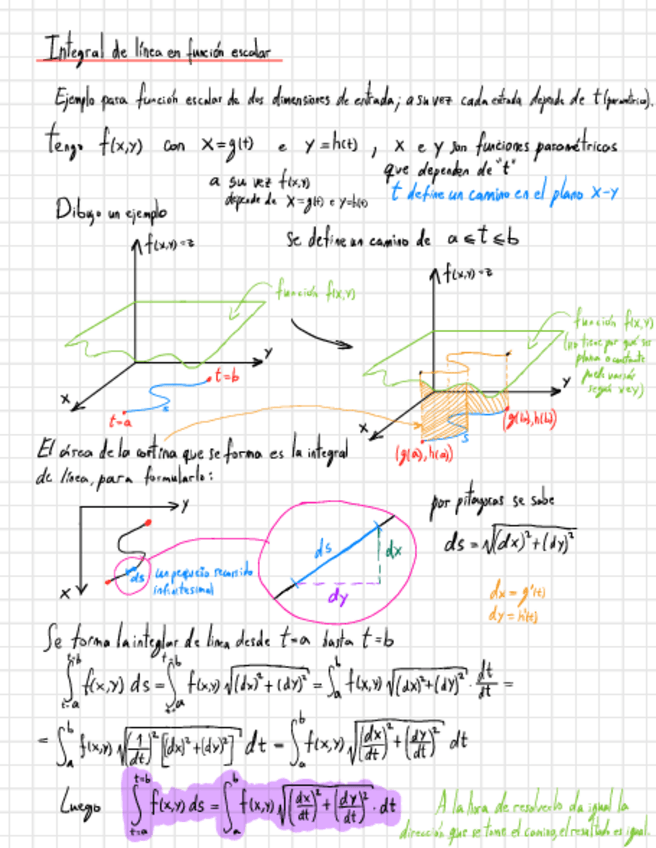 Integral de línea en función escalar
Ejemplo para función escalar de dos dimensiones de entrada; a su vez cada entrada depende de t (parametrica).
Tengo f(x,y) con x=g(t) e y=h(t), x e y son funciones parométricas
que dependen de "t"
a su vez f(x,y)
depende de x=g(t) e y=h(t)
t define un camino en el plano x-y
Dibujo un ejemplo
Se define un camino de a≤t≤b
f(x,y)=z
función f(x,y)
y
x
t=b
t=a
s
f(x,y)=z
función f(x,y)
(no tiene por qué ser
plana o constante
puede variar
según x e y)
y
x
(g(b),h(b))
(g(a),h(a))
s
El área de la cortina que se forma es la integral
de línea, para formularlo:
y
x
ds un pequeño recorrido
infinitesimal
ds
dx
dy
por pitagoras se sabe
ds=√((dx)²+(dy)²)
dx=g'(t)
dy=h'(t)
Se forma la integlar de linea desde t=a hasta t=b
∫_{t=a}^{t=b} f(x,y) ds = ∫_{t=a}^{t=b} f(x,y) √((dx)²+(dy)²) = ∫_a^b f(x,y) √((dx)²+(dy)²) · dt/dt =
= ∫_a^b f(x,y) √((1/dt)² [(dx)²+(dy)²]) dt = ∫_a^b f(x,y) √((dx/dt)²+(dy/dt)²) dt
Luego ∫_{t=a}^{t=b} f(x,y) ds = ∫_a^b f(x,y) √((dx/dt)²+(dy/dt)²) · dt
A la hora de resolverlo da igual la
dirección que se tome el camino, el resultado es igual.